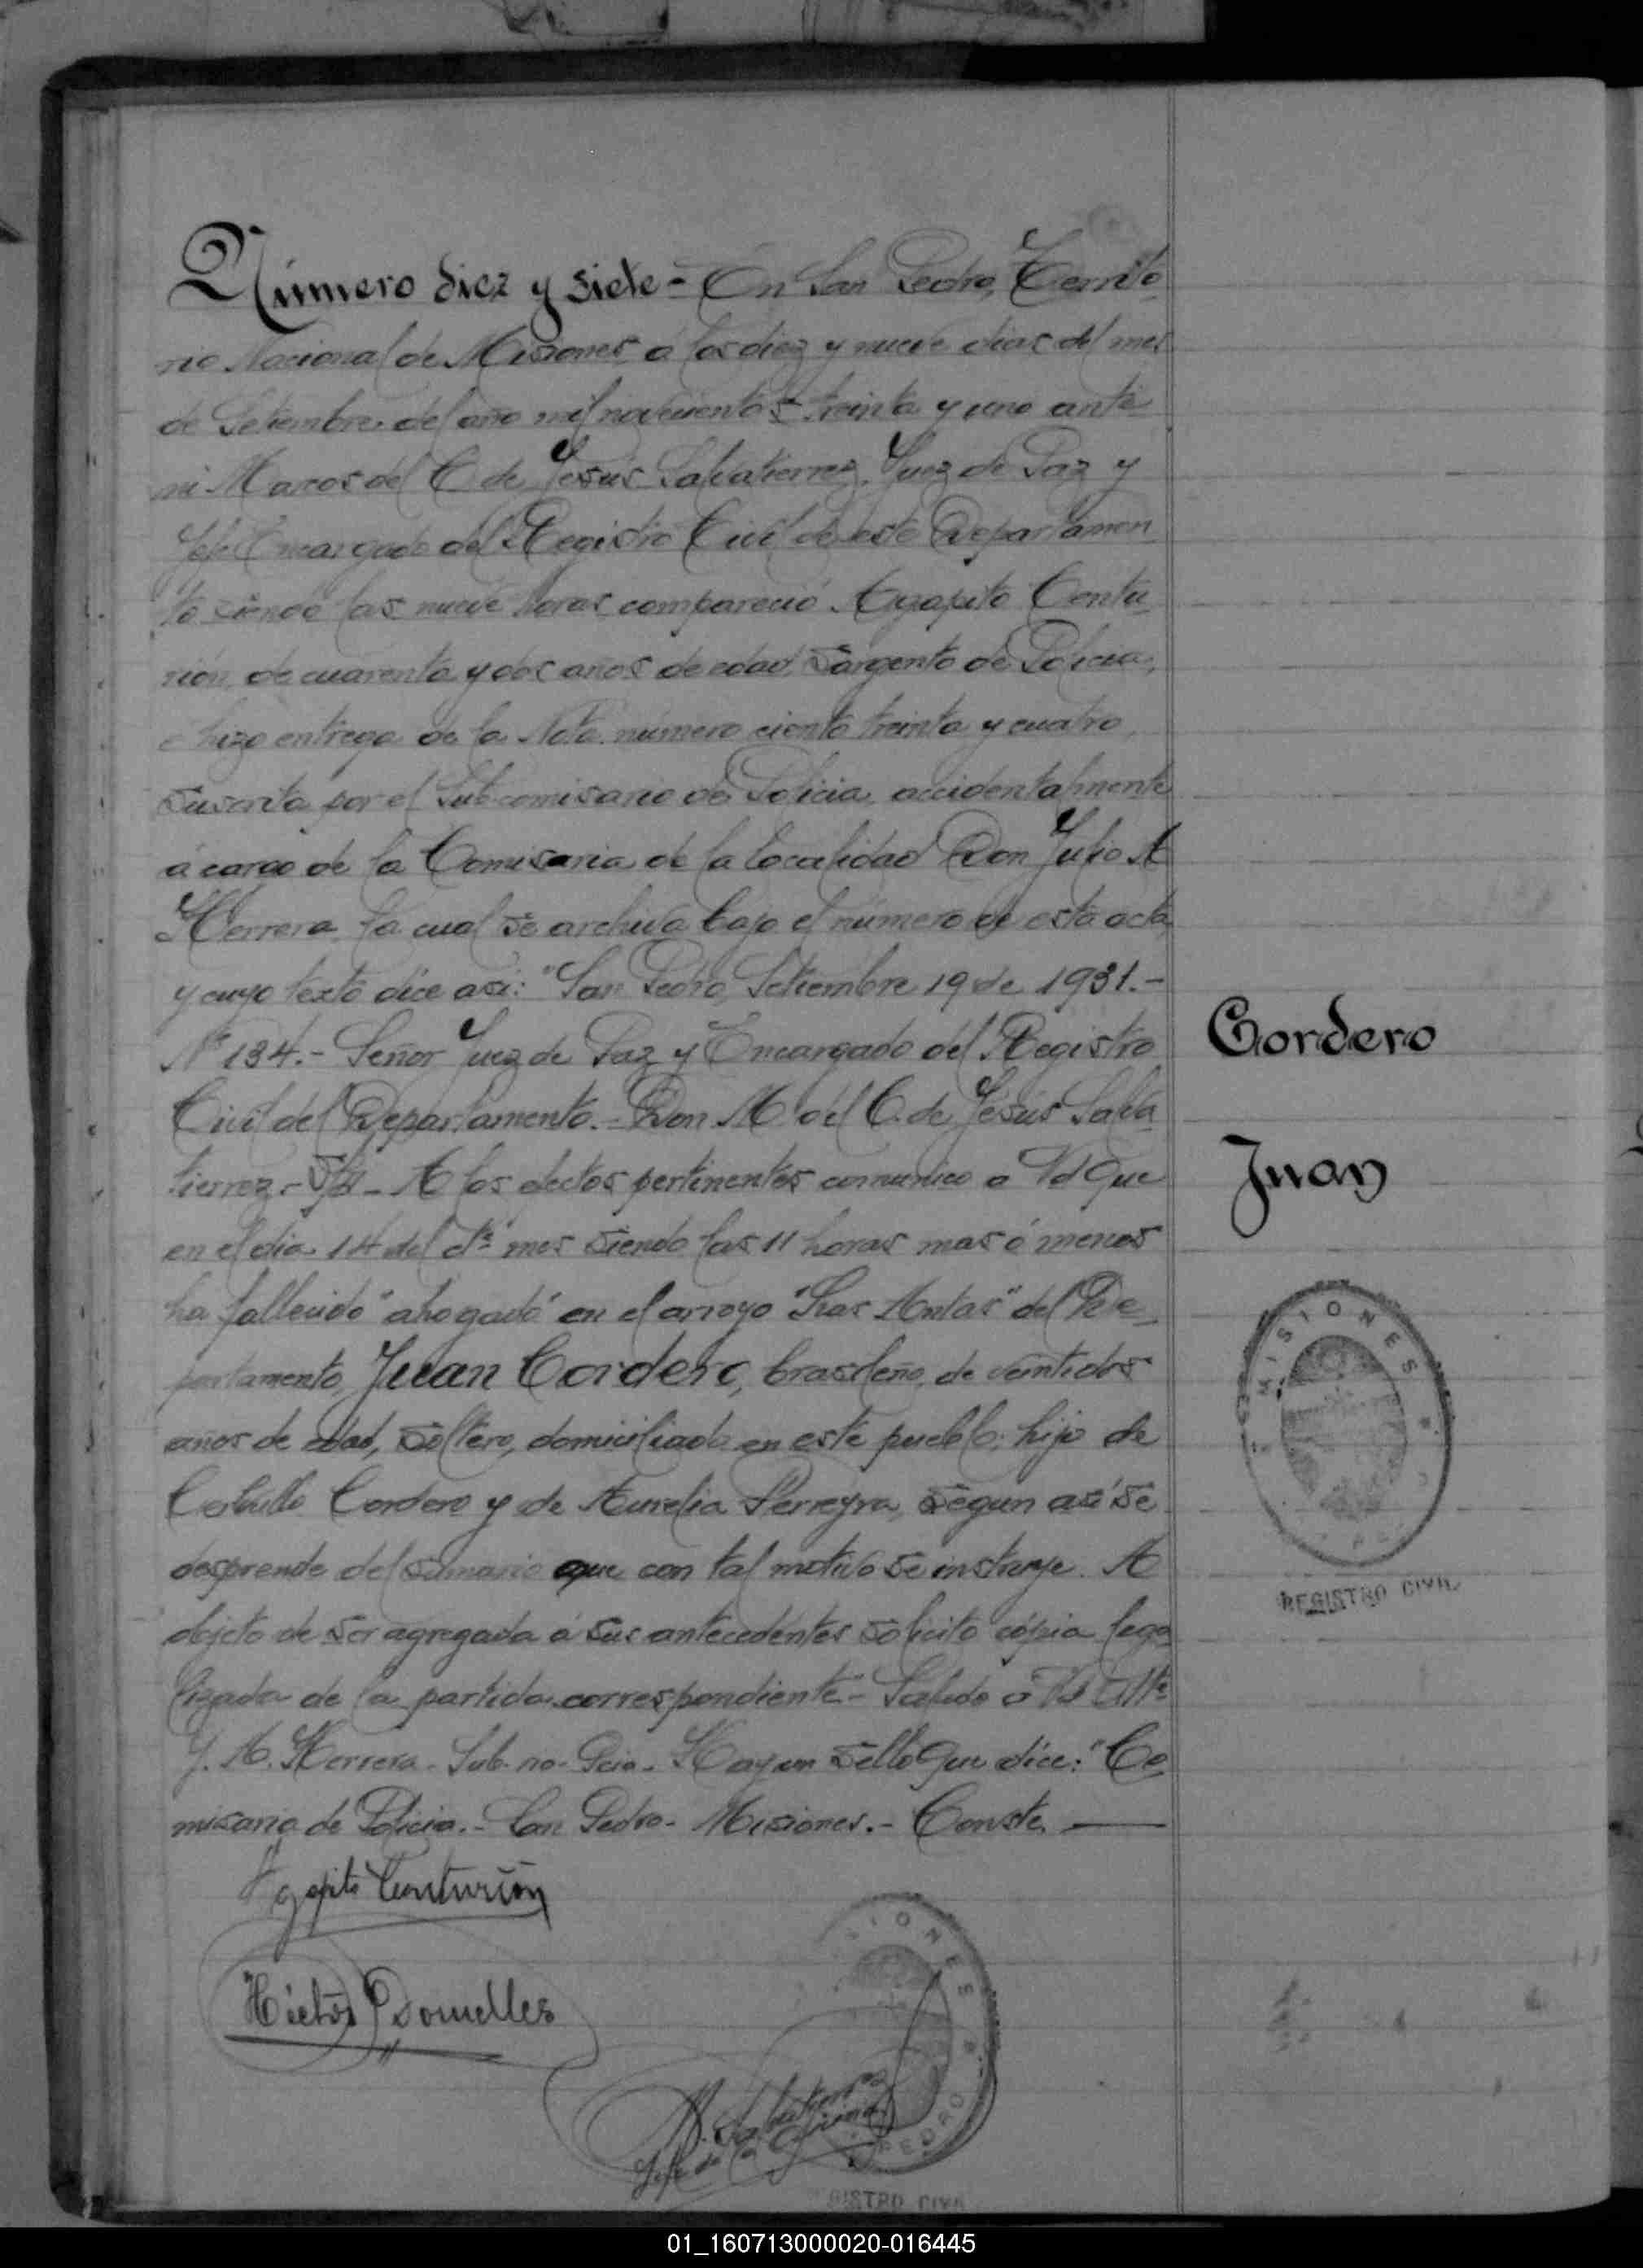 Número diez y siete - En San Pedro, Territo
rio Nacional de Misiones a los diez y nueve dias del mes
de Setiembre del año mil novecientos treinta y uno ante
mi Marcos del C. de Jesús Salvatierrez, Juez de Paz y
Jefe Encargado del Registro Civil de este Departamen
to siendo las nueve horas compareció Agapito Centu
rión, de cuarenta y dos años de edad, Sargento de Policia,
é hizo entrega de la Nota número ciento treinta y cuatro,
suscrita por el Sub-comisario de Policia, accidentalmente
á cargo de la Comisaria de la localidad Don Julio A
Herrera, la cual se archiva bajo el número de esta acta,
y cuyo texto dice asi: "San Pedro, Setiembre 19 de 1931.-
Nº 134.- Señor Juez de Paz y Encargado del Registro
Civil del Departamento.- Don M. del C. de Jesús Salva
tierrez.- S/d - A los efectos pertinentes comunico a Vd que
en el dia 14 del cte mes siendo las 11 horas mas ó menos
ha fallecido "ahogado" en el arroyo "Las Antas" del De
partamento, Juan Cordero, brasileño, de veintidos
años de edad, soltero, domiciliado en este pueblo, hijo de
Cordero y de Aurelia Ferreyra, según asi se
desprende del sumario que con tal motivo se instruye. A
objeto de ser agregada á sus antecedentes solicito cópia lega
lizada de la partida correspondiente.- Saludo á Vd Atte
J. A. Herrera - Sub. rio - Hay un sello que dice: "Co
misaria de Policia.- San Pedro - Misiones.- Conste.
Agapito Centurión
Héctor Dornelles
M. Salvatierrez
Jefe de la Oficina
MISIONES
PEDRO
REGISTRO CIVIL
Cordero
Juan
MISIONES
REGISTRO CIVIL
01_160713000020-016445